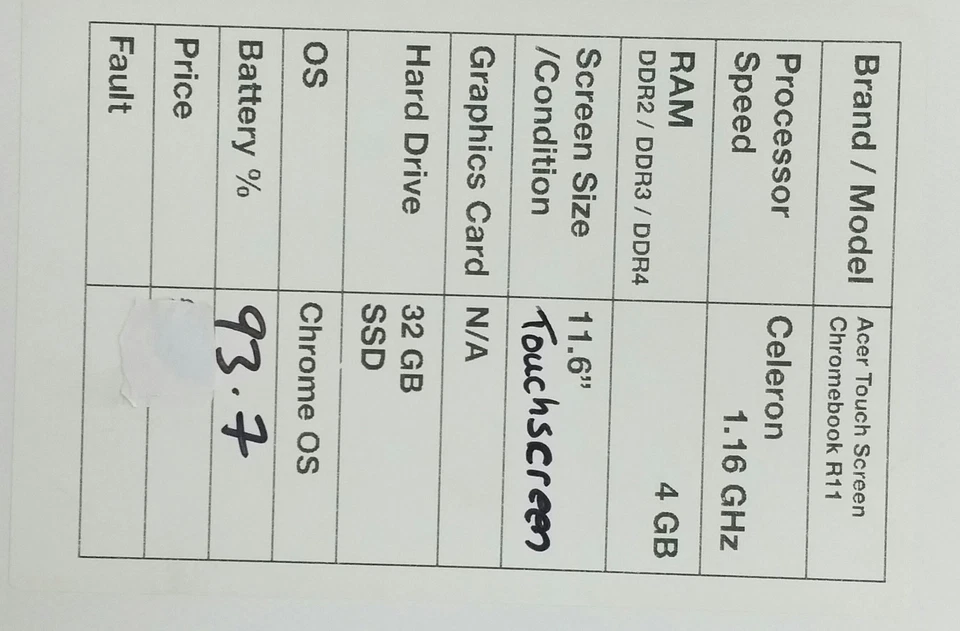 Brand / Model
Acer Touch Screen
Chromebook R11
Processor
Speed
Celeron
1.16 GHz
RAM
DDR2 / DDR3 / DDR4
4 GB
Screen Size
/Condition
11.6”
Touchscreen
Graphics Card
N/A
Hard Drive
32 GB
SSD
OS
Chrome OS
Battery %
93.7
Price
Fault